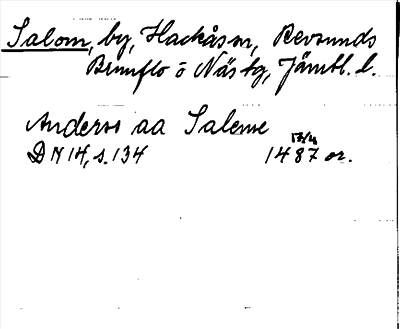 Salom, by, Hackås sn, Revsunds
Brunflo o Näs tg, Jämtl. l.
Anders aa Saleme
DN 14, s. 134 1487 or.